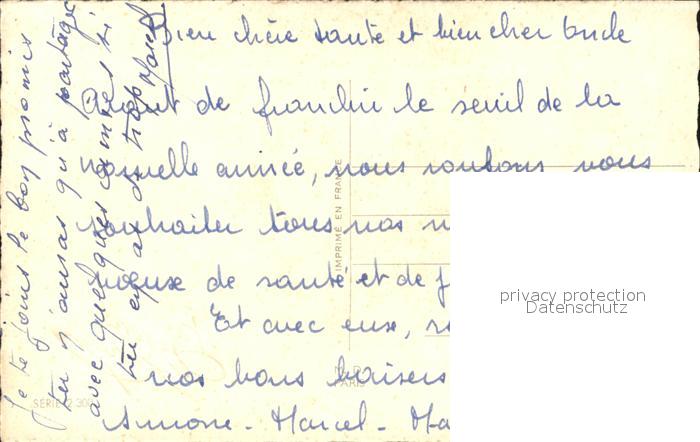 Bien chère tante et bien cher oncle
Avant de franchir le seuil de la
nouvelle année, nous voulons vous
souhaiter tous nos
voeux de santé et de
Et avec eux,
nos bons baisers
Simone - Marcel -
Je te joins le bon promis
tu n'auras qu'à partager
avec quelques amies si
tu en as de trop
Marcel
IMPRIMÉ EN FRANCE
PARIS
SERIE
privacy protection
Datenschutz